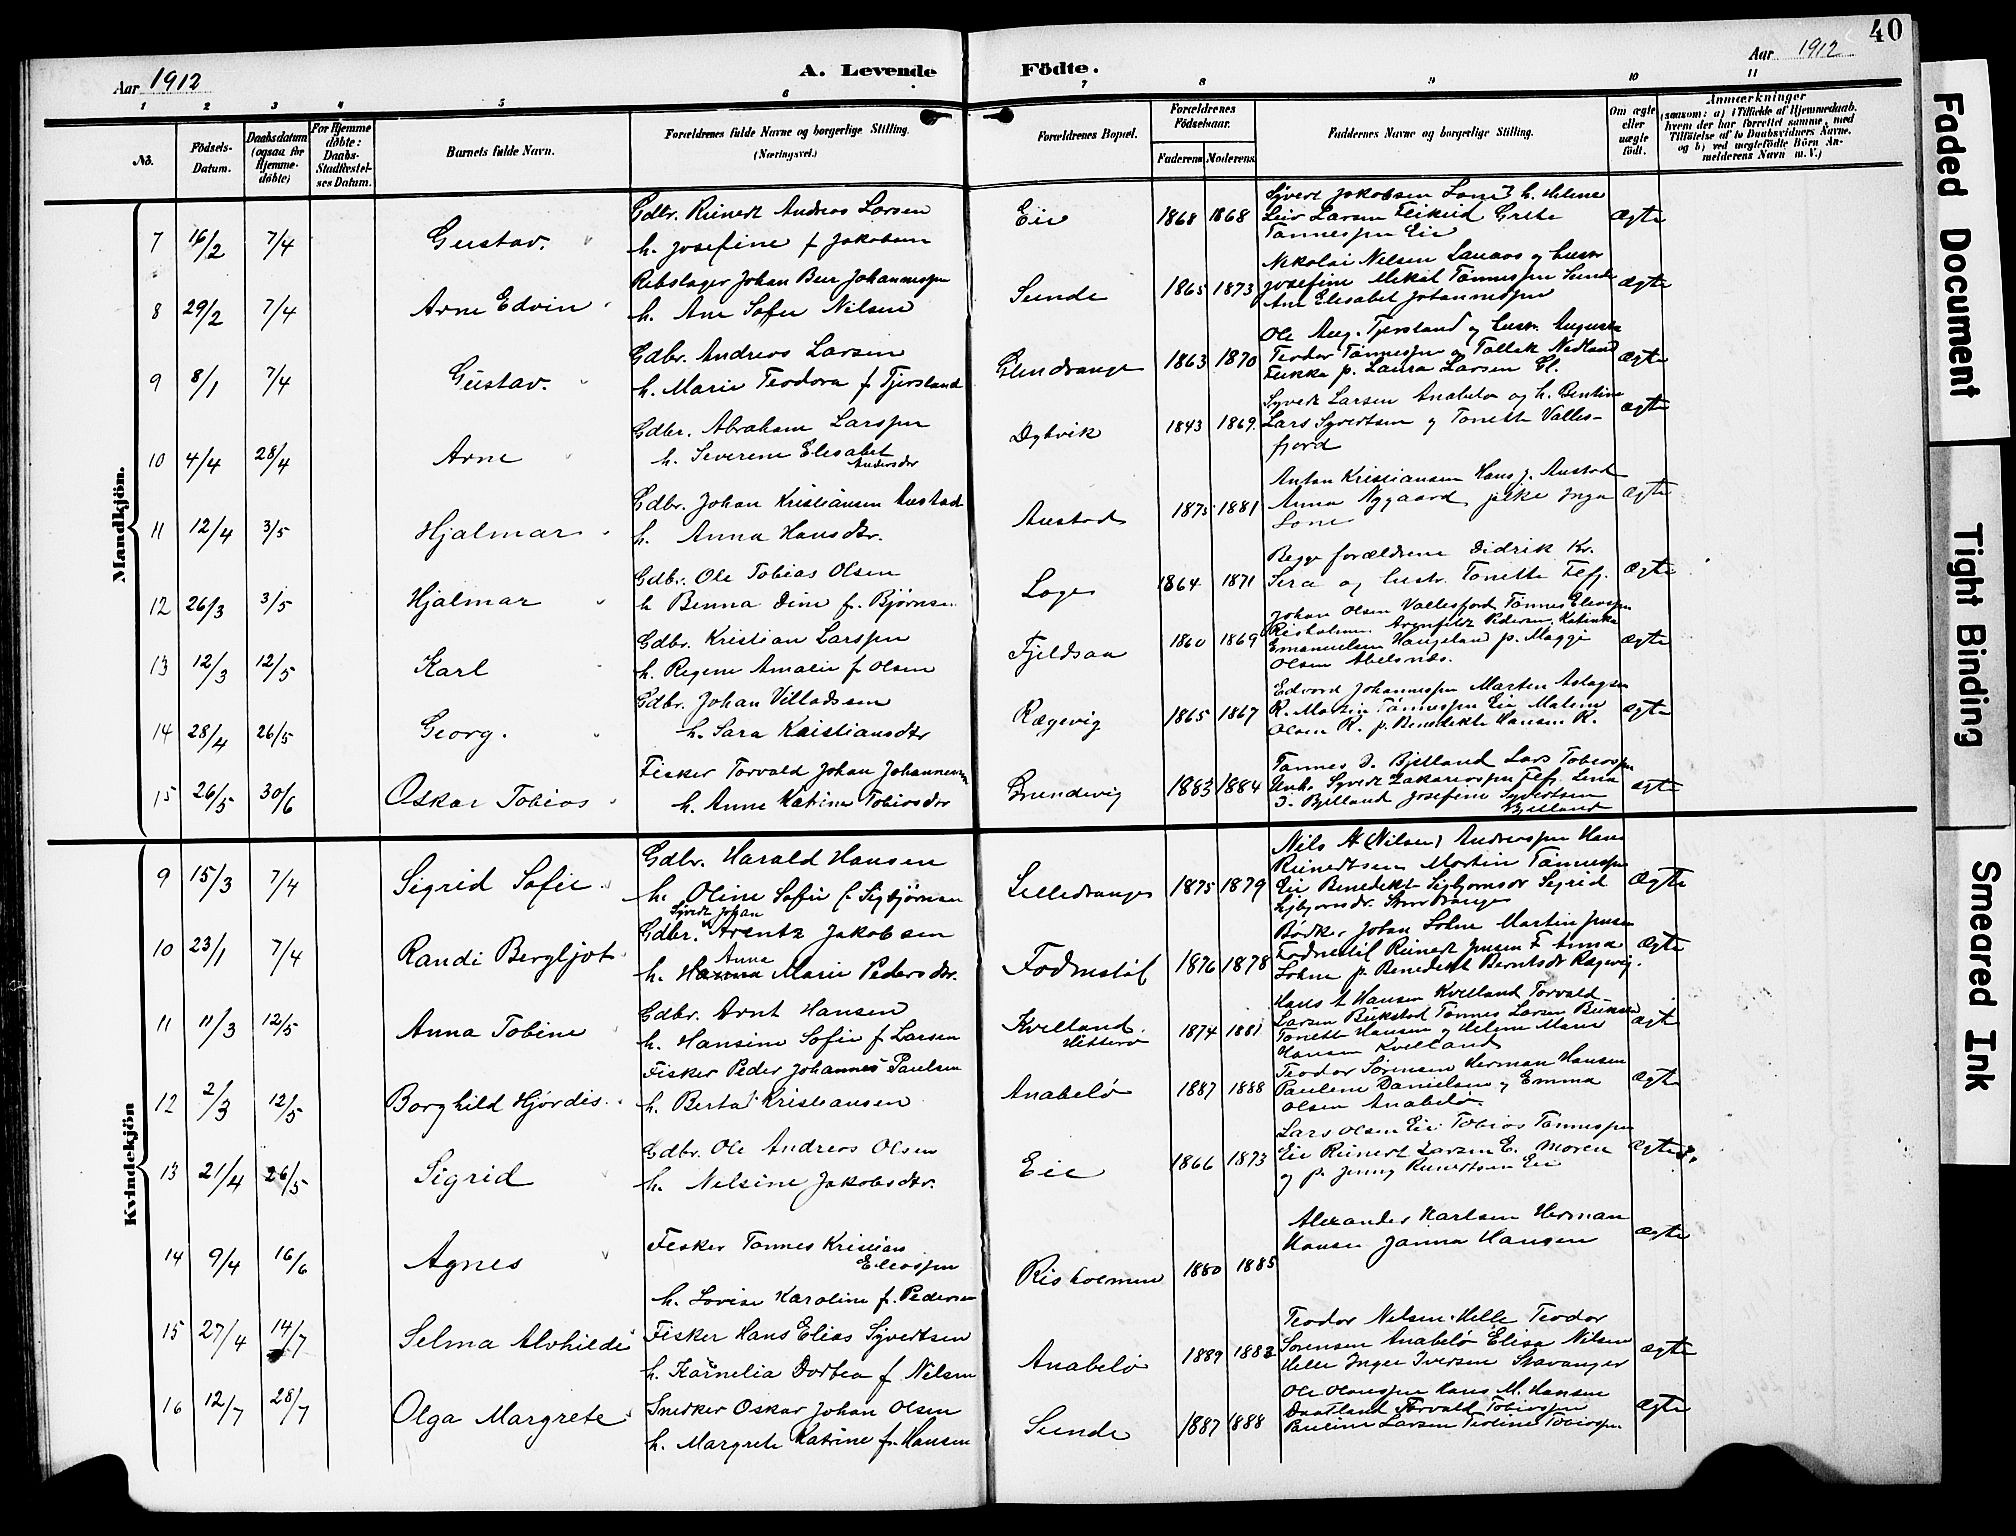 40
Aar 1912
A. Levende Födte.
Aar 1912
1 2 3 4 5 6 7 8 9 10 11
No. Födsels-Datum. Daabsdatum (ogsaa for Hjemme-döbte) For Hjemme döbte: Daabs-Stadfæstel-ses Datum. Barnets fulde Navn. Forældrenes fulde Navne og borgerlige Stilling. (Næringsvei.) Forældrenes Bopæl. Forældrenes Födselsaar. Faderens Moderens Faddernes Navne og borgerlige Stilling. Om ægte eller uægte födt. Anmærkninger
(saasom: a) i Tilfælde af Hjemmedaab, hvem der har forrettet samme, med Tilföielse af to Daabsvidners Navne. og b) ved uægtefödte Börn An-melderens Navn m. V.)
Mandkjön.
7 16/2 7/4 Gustav.
Gdbr. Reinert Andreas Larsen
h. Josefine f Jakobsen
Eie 1868 1868
Syvert Jakobsen Lone h. Helene
Leiv Larsen Feikild Grete
Tønnespn Eie
ægte
8 29/2 7/4 Arne Edvin
Rebslager Johan Beer Johannespn
h. Ane Sofie Nilsen
Sunde 1865 1873
Nikolai Nilsen Lauaas og hustr
Josefine Mikal Tønnespn Sunde
Ane Elisabet Johannespn
ægte
9 8/1 7/4 Gustav.
Gdbr. Andreas Larsen
h. Marie Teodora f Tjersland
Glendrange 1863 1870
Ole Aug. Tjersland og hustr. Augusta
Teodor Tønnespn og Tallak Nedland
Fukka p. Laura Larsen Gl.
ægte
10 4/4 28/4 Arne
Gdbr. Abraham Larspn
h. Severine Elisabet
Andersdtr
Dybvik 1843 1869.
Syvert Larsen Anabelø og h. Bentine
Lars Syvertsen og Tonette Valles-
fjord
ægte
11 12/4 3/5 Hjalmar
Gdbr. Johan Kristiansen Austad
h. Anna Hansdtr.
Austad 1875 1881
Anton Kristiansen Hans J. Austad
Anna Nygaard pike Inga
Lone
ægte
12 26/3 3/5 Hjalmar
Gdbr. Ole Tobias Olsen
h Benna Dine f. Bjørnsen
Loge 1864 1871
Begge forældrene Didrik Kr.
Sira og hustr. Tonette Flef.
ægte
13 12/3 12/5 Karl
Gdbr. Kristian Larspn
h. Regine Amalie f Olsen
Fjeldsaa 1860 1869
Johan Olsen Vallesfjord Tønnes Eliaspn
Risholmen Arenfeldt Pedersen Katinka
Emanuelsen Haugeland p. Maggi
Olsen Abelsnæs.
ægte
14 28/4 26/5 Georg.
Gdbr. Johan Villadsen
h. Sara Kristiansdtr
Rægevig 1865 1867
Edvard Johannespn Marten Aslagsen
R. Martin Tønnespn Eie Malene
Olsen R. p. Benedikte Hansen R.
ægte
15 26/5 30/6 Oskar Tobias
Fisker Torvald Johan Johannessen
h. Anne Katrine Tobiasdtr
Grundevig 1883 1884
Tønnes J. Bjelland Lars Tobiaspn
Unk. Syvert Zakariaspn Flef. Lina
J. Bjelland Josefine Syvertsen
Bjelland
ægte
Kvindekjön
9 15/3 7/4 Sigrid Sofie
Gdbr. Harald Hansen
h. Oline Sofie f Sigbjørnsen
Lilledrange 1875 1879
Nils A (Nilsen) Anderspn Hans
Reinertsen Martin Tønnespn
Eie Benedikte Sigbjørnsdr Sigrid
Sigbjørnsdr. Stordrange
ægte
10 23/1 7/4 Randi Bergljot
Syvert Johan
Gdbr. Arentz Jakobsen
Anna
h. Hanna Marie Pedersdtr.
Fodmstøl 1876 1878
Bødker Johan Lohne Martin Jensen
Fodmstøl Reinert Jensen F Anna
Lohne p. Benedikte Berntsdr Rægevig.
ægte
11 11/3 12/5 Anna Tobine
Gdbr. Arnt Hansen
h. Hansine Sofie f Larsen
Kvelland.
Hitterø
1874 1881
Hans A Hansen Kvelland Torvald
Larsen Birkstad Tønnes Larsen
Tonette Hansen og Helene Marie
Hansen Kvelland
ægte
12 2/3 12/5 Borghild Hjørdis.
Fisker Peder Johannes Paulsen
h. Berta Kristiansen
Anabelø 1887 1888
Teodor Sørensen Herman Hansen
Pauline Danielsen og Emma
Olsen Anabelø.
ægte
13 21/4 26/5 Sigrid
Gdbr. Ole Andreas Olsen
h. Nelsine Jakobsdtr.
Eie 1866 1873
Lars Olsen Eie Tobias Tønnespn
Eie Reinert Larsen E. Moren
og p. Jenny Reinertsen Eie
ægte
14 9/4 16/6 Agnes
Fisker Tønnes Kristian
Eliaspn
h. Lovise Karoline f. Pedersen
Risholmen 1880 1885
Alexander Karlsen Herman
Hansen Janna Hansen
ægte
15 27/4 14/7 Selma Alvhilde
Fisker Hans Elias Syvertsen
h. Kornelia Dortea f Nilsen
Anabelø 1889 1882
Teodor Nilsen Helle Teodor
Sørensen Anabelø Elise Nilsen
Helle Inger Iversen Stavanger
ægte
16 12/7 28/7 Olga Margrete
Snedker Oskar Johan Olsen
h. Margrete Katrine fr. Hansen
Sunde 1887 1888
Ole Olauspn Hans M. Hansen
Daatland Torvald Tobiaspn
Pauline Larsen Teoline Tobiaspn.
ægte
Faded Document
Tight Binding
Smeared Ink